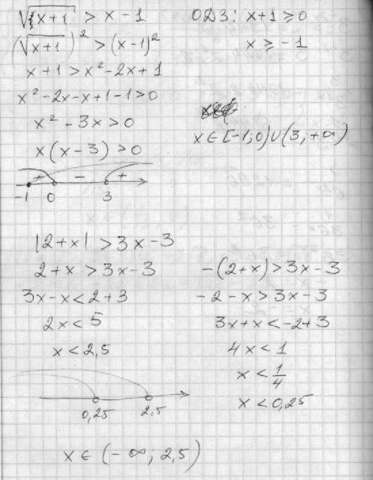 √(x+1) > x-1
ОДЗ: x+1 ≥ 0
(√(x+1))² > (x-1)²
x ≥ -1
x+1 > x²-2x+1
x²-2x-x+1-1>0
x²-3x>0
x ∈ [-1;0) ∪ (3,+∞)
x(x-3)>0
+ - +
-1 0 3
|2+x| > 3x-3
2+x > 3x-3
-(2+x) > 3x-3
3x-x < 2+3
-2-x > 3x-3
2x < 5
3x+x < -2+3
x < 2,5
4x < 1
x < 1/4
x < 0,25
0,25 2,5
x ∈ (-∞; 2,5)